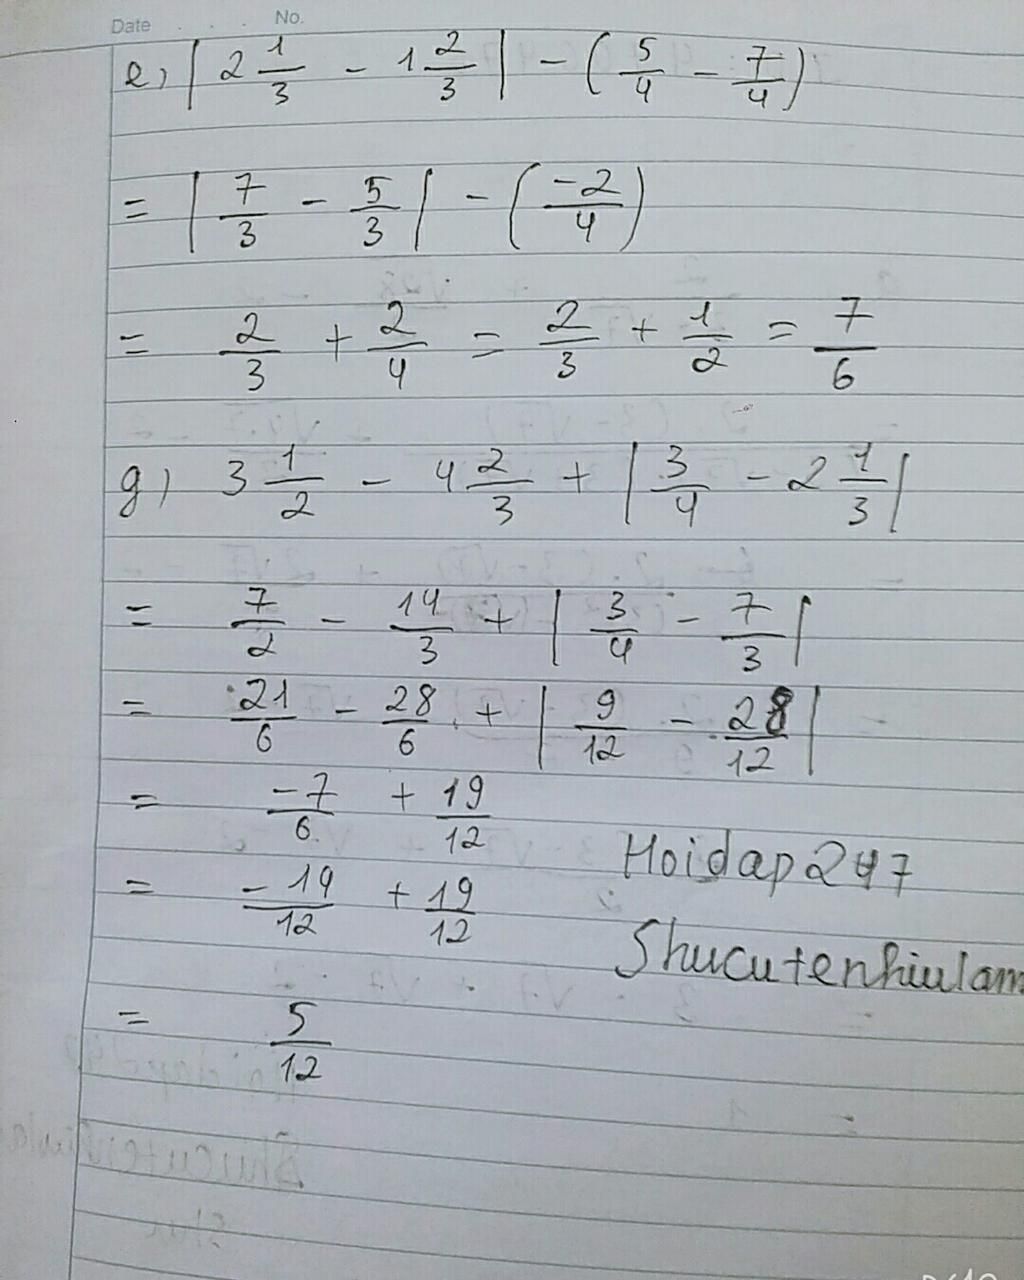 Date No.
e) | 2 1/3 - 1 2/3 | - (5/4 - 7/4)
= | 7/3 - 5/3 | - (-2/4)
= 2/3 + 2/4 = 2/3 + 1/2 = 7/6
g) 3 1/2 - 4 2/3 + | 3/4 - 2 1/3 |
= 7/2 - 14/3 + | 3/4 - 7/3 |
= 21/6 - 28/6 + | 9/12 - 28/12 |
= -7/6 + 19/12
Hoidap247
= -14/12 + 19/12
Shucutenhiulam
= 5/12